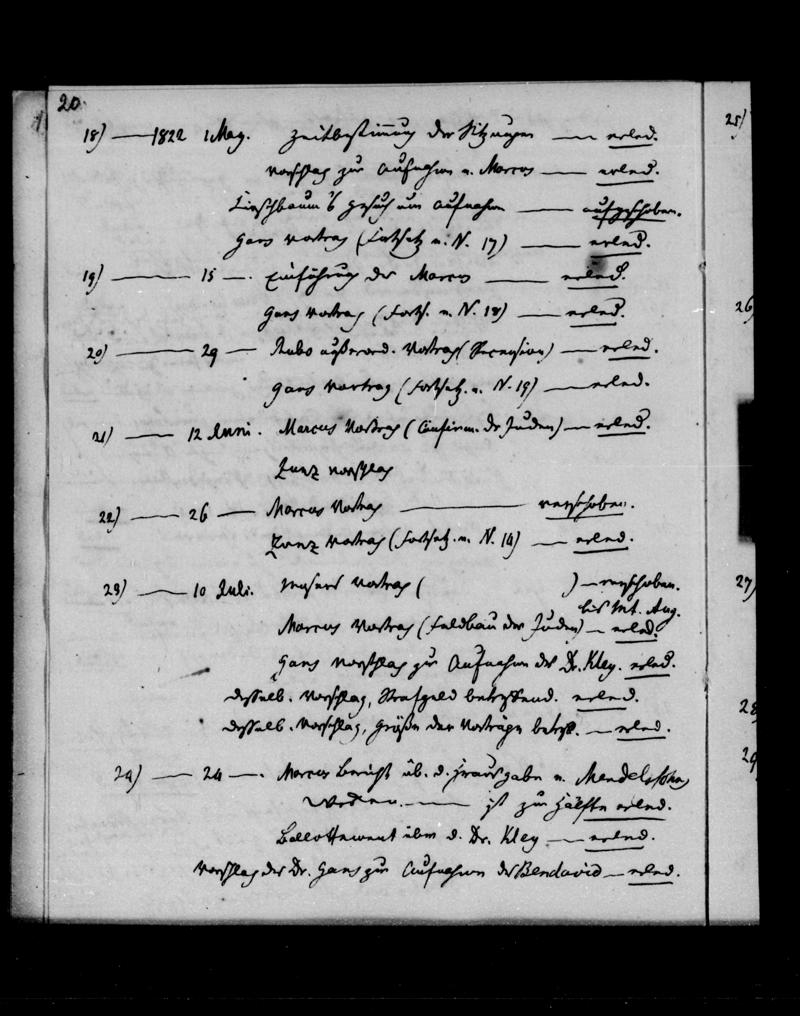 20.
18) — 1822 1 May. Zeitbestimmung der Sitzungen — erled.
Vorschlag zur Aufnahme v. Marcus — erled.
Kirschbaum's Gesuch um Aufnahme — aufgeschoben.
Gans Vortrag (Fortsetz. v. N. 17) — erled.
19) — 15 —. Einführung des Marcus — erled.
Gans Vortrag (Forts. v. N. 18) — erled.
20) — 29 — Rubo außerord. Vortrag (Recension) — erled.
Gans Vortrag (Fortsetz. v. N. 19) — erled.
21) — 12 Juni. Marcus Vortrag (Confirm. der Juden) — erled.
Zunz Vorschlag
22) — 26 — Marcus Vortrag — verschoben.
Zunz Vortrag (Fortsetz. v. N. 14) — erled.
23) — 10 Juli. Vortrag ( ) — verschoben.
bis Mt. Aug.
Marcus Vortrag (Feldbau der Juden) — erled.
Gans Vorschlag zur Aufnahme des Dr. Kley. erled.
desselb. Vorschlag, Strafgeld betreffend. erled.
desselb. Vorschlag, Größe der Vorträge betreff. — erled.
24) — 24 —. Marcus Bericht üb. d. Herausgabe v. Mendelssohns
Werken. — ist zur Hälfte erled.
Ballottement über d. Dr. Kley — erled.
Vorschlag des Dr. Gans zur Aufnahme des Bendavid — erled.
25)
26)
27)
28
29